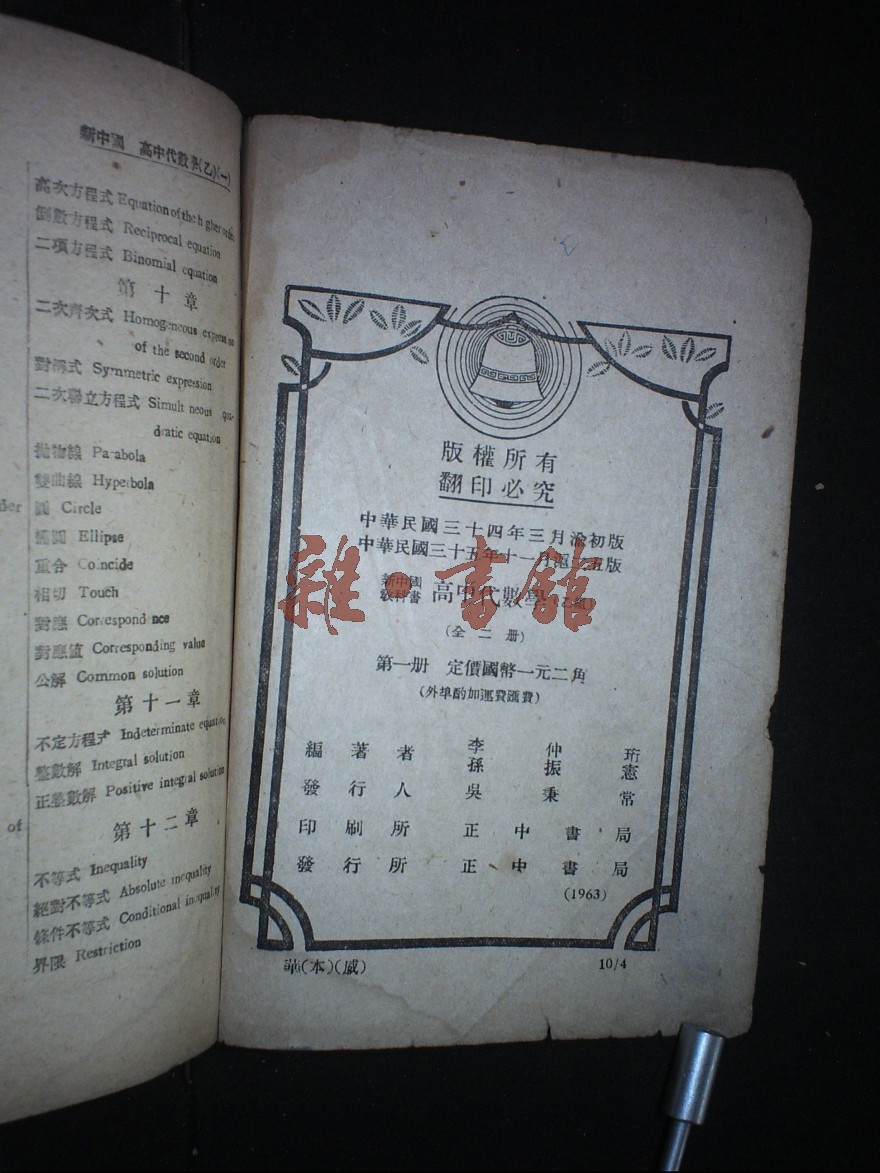 新中國 高中代數學(乙)(一)
高次方程式 Equation of the higher order
倒數方程式 Reciprocal equation
二項方程式 Binomial equation
第十章
二次齊次式 Homogeneous expression
of the second order
對稱式 Symmetric expression
二次聯立方程式 Simult neous qua-
dratic equation
拋物線 Parabola
雙曲線 Hyperbola
圓 Circle
橢圓 Ellipse
重合 Coincide
相切 Touch
對應 Correspondence
對應值 Corresponding value
公解 Common solution
第十一章
不定方程式 Indeterminate equation
整數解 Integral solution
正整數解 Positive integral solution
第十二章
不等式 Inequality
絕對不等式 Absolute inequality
條件不等式 Conditional inequality
界限 Restriction
der
of
版權所有
翻印必究
中華民國三十四年三月渝初版
中華民國三十五年十一月滬一五版
新中國
教科書 高中代數學(乙組)
(全二册)
第一册 定價國幣一元二角
(外埠酌加運費匯費)
編著者 李仲珩
孫振憲
發行人 吳秉常
印刷所 正中書局
發行所 正中書局
(1963)
華(本)(威)
10/4
雜·書館